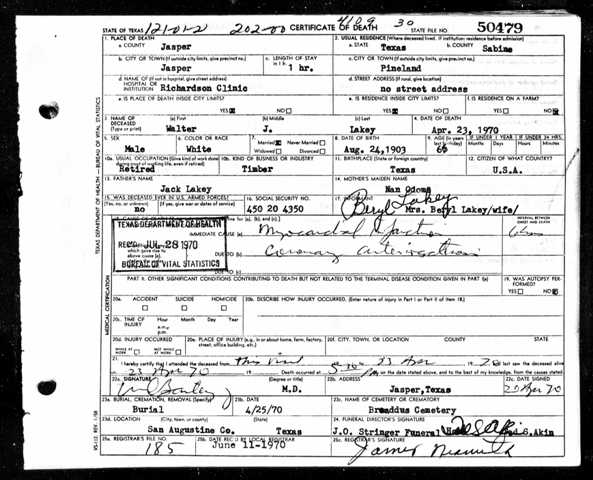 STATE OF TEXAS 121-01-2 202-00 CERTIFICATE OF DEATH 4109 30 STATE FILE NO. 50479
1. PLACE OF DEATH 2. USUAL RESIDENCE (Where deceased lived. If institution: residence before admission)
a. COUNTY Jasper a. STATE Texas b. COUNTY Sabine
b. CITY OR TOWN (If outside city limits, give precinct no.) c. LENGTH OF STAY c. CITY OR TOWN (If outside city limits, give precinct no.)
Jasper 1 hr. Pineland
d. NAME OF (If not in hospital, give street address) d. STREET ADDRESS (If rural, give location)
HOSPITAL OR INSTITUTION Richardson Clinic no street address
e. IS PLACE OF DEATH INSIDE CITY LIMITS? e. IS RESIDENCE INSIDE CITY LIMITS? f. IS RESIDENCE ON A FARM?
YES NO YES NO YES NO
3. NAME OF DECEASED (Type or print) (a) First (b) Middle (c) Last 4. DATE OF DEATH
Walter J. Lakey Apr. 23, 1970
5. SEX 6. COLOR OR RACE 7. Married Never Married Widowed Divorced 8. DATE OF BIRTH 9. AGE (In years last birthday) IF UNDER 1 YEAR Months Days IF UNDER 24 HRS. Hours Minutes
Male White Aug. 24,1903 66
10a. USUAL OCCUPATION (Give kind of work done during most of working life, even if retired) 10b. KIND OF BUSINESS OR INDUSTRY 11. BIRTHPLACE (State or foreign country) 12. CITIZEN OF WHAT COUNTRY?
Retired Timber Texas U.S.A.
13. FATHER'S NAME 14. MOTHER'S MAIDEN NAME
Jack Lakey Nan Odoms
15. WAS DECEASED EVER IN U.S. ARMED FORCES? 16. SOCIAL SECURITY NO. 17. INFORMANT Beryl Lakey
(Yes, no, or unknown) (If yes, give war or dates of service)
no 450 20 4350 Mrs. Beryl Lakey/wife/
TEXAS DEPARTMENT OF HEALTH
REC'D JUL 28 1970
BUREAU OF VITAL STATISTICS
INTERVAL BETWEEN ONSET AND DEATH
IMMEDIATE CAUSE (a)
DUE TO (b) Coronary
DUE TO (c)
PART II. OTHER SIGNIFICANT CONDITIONS CONTRIBUTING TO DEATH BUT NOT RELATED TO THE TERMINAL DISEASE CONDITION GIVEN IN PART I(a) 19. WAS AUTOPSY PERFORMED?
YES NO
20a. ACCIDENT SUICIDE HOMICIDE 20b. DESCRIBE HOW INJURY OCCURRED. (Enter nature of injury in Part I or Part II of item 18.)
20c. TIME OF INJURY Hour Month Day Year
a.m.
p.m.
20d. INJURY OCCURRED 20e. PLACE OF INJURY (e.g., in or about home, farm, factory, street, office building, etc.) 20f. CITY, TOWN, OR LOCATION COUNTY STATE
WHILE AT WORK NOT WHILE AT WORK
21. I hereby certify that I attended the deceased from this 23 Apr 19 70 last saw the deceased alive
on 23 Apr 70 19 Death occurred at on the date stated above, and to the best of my knowledge, from the causes stated.
22a. SIGNATURE (Degree or title) 22b. ADDRESS 22c. DATE SIGNED
M.D. Jasper,Texas
23a. BURIAL, CREMATION, REMOVAL (Specify) 23b. DATE 23c. NAME OF CEMETERY OR CREMATORY
Burial 4/25/70 Broaddus Cemetery
23d. LOCATION (City, town, or county) (State) 24. FUNERAL DIRECTOR'S SIGNATURE
San Augustine Co. Texas J.O. Stringer Funeral Akin
25a. REGISTRAR'S FILE NO. 25b. DATE REC'D BY LOCAL REGISTRAR 25c. REGISTRAR'S SIGNATURE
185 June 11-1970 James
TEXAS DEPARTMENT OF HEALTH—BUREAU OF VITAL STATISTICS
MEDICAL CERTIFICATION
VS-112 REV. 1/58